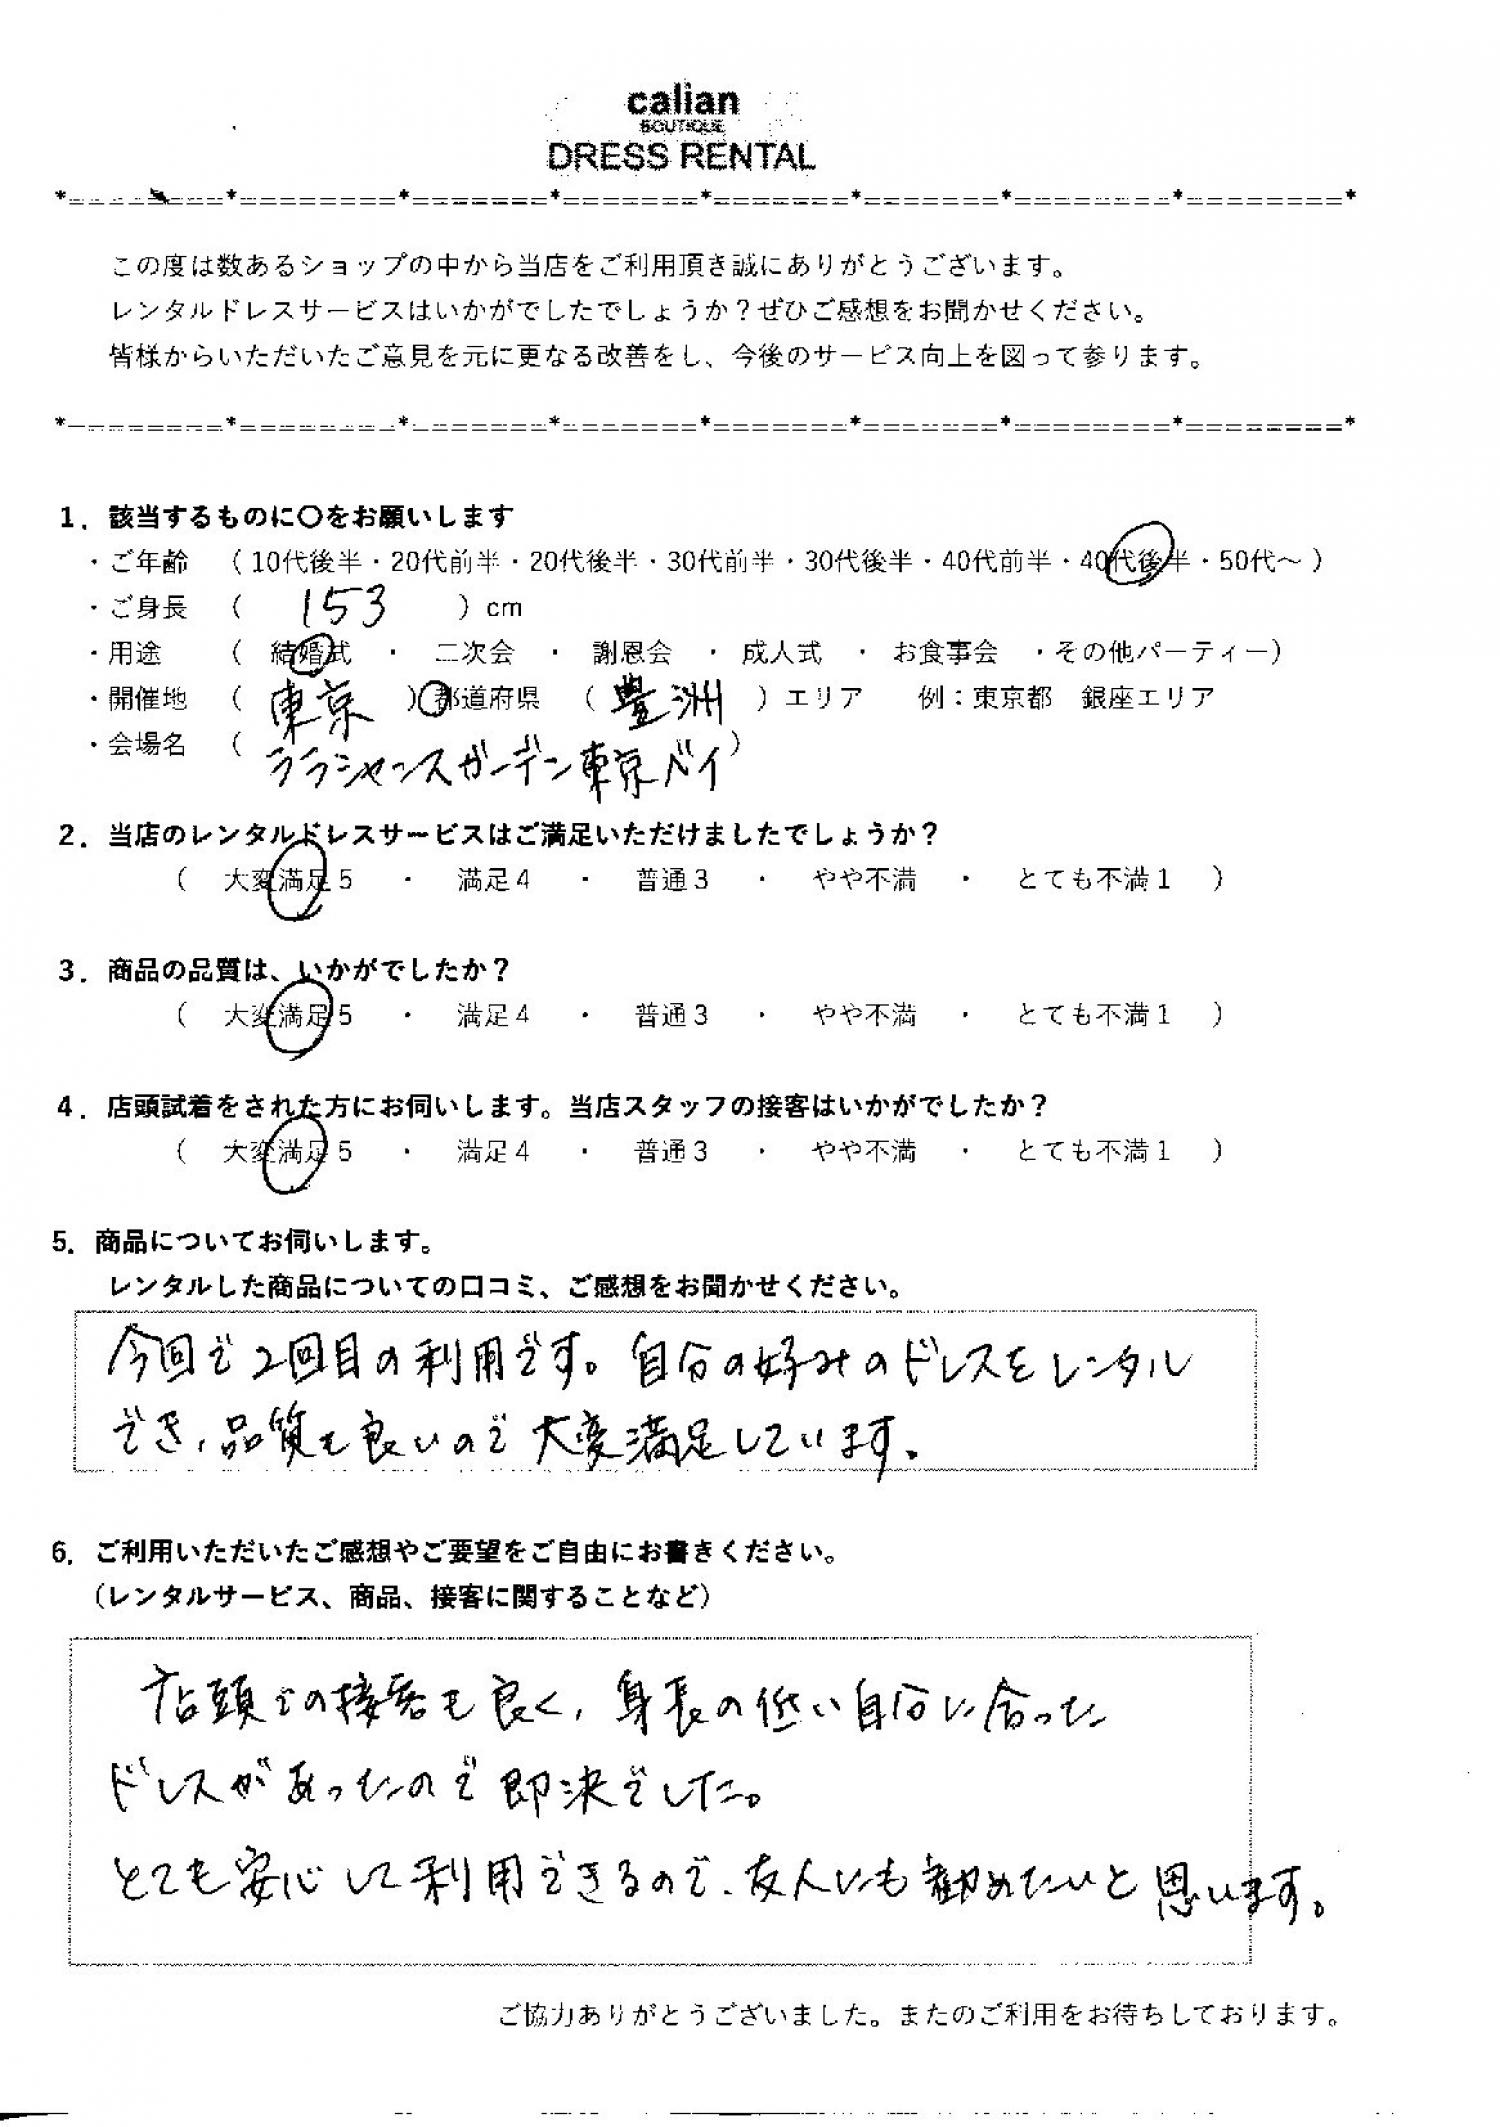 calian
BOUTIQUE
DRESS RENTAL
*=========*=========*========*========*========*========*=========*=========*
この度は数あるショップの中から当店をご利用頂き誠にありがとうございます。
レンタルドレスサービスはいかがでしたでしょうか？ぜひご感想をお聞かせください。
皆様からいただいたご意見を元に更なる改善をし、今後のサービス向上を図って参ります。
*=========*=========*========*========*========*========*=========*=========*
1．該当するものに〇をお願いします
・ご年齢 （ 10代後半・20代前半・20代後半・30代前半・30代後半・40代前半・40代後半・50代～ ）
・ご身長 （ 153 ）cm
・用途 （ 結婚式 ・ 二次会 ・ 謝恩会 ・ 成人式 ・ お食事会 ・その他パーティー）
・開催地 （ 東京 ）都道府県 （ 豊洲 ）エリア 例：東京都 銀座エリア
・会場名 （ ララシャンスガーデン東京ベイ ）
2．当店のレンタルドレスサービスはご満足いただけましたでしょうか？
（ 大変満足5 ・ 満足4 ・ 普通3 ・ やや不満 ・ とても不満1 ）
3．商品の品質は、いかがでしたか？
（ 大変満足5 ・ 満足4 ・ 普通3 ・ やや不満 ・ とても不満1 ）
4．店頭試着をされた方にお伺いします。当店スタッフの接客はいかがでしたか？
（ 大変満足5 ・ 満足4 ・ 普通3 ・ やや不満 ・ とても不満1 ）
5．商品についてお伺いします。
レンタルした商品についての口コミ、ご感想をお聞かせください。
今回で2回目の利用です。自分の好みのドレスをレンタル
でき、品質も良いので大変満足しています。
6．ご利用いただいたご感想やご要望をご自由にお書きください。
（レンタルサービス、商品、接客に関することなど）
店頭での接客も良く、身長の低い自分に合った
ドレスがあったので即決でした。
とても安心して利用できるので、友人にも勧めたいと思います。
ご協力ありがとうございました。またのご利用をお待ちしております。